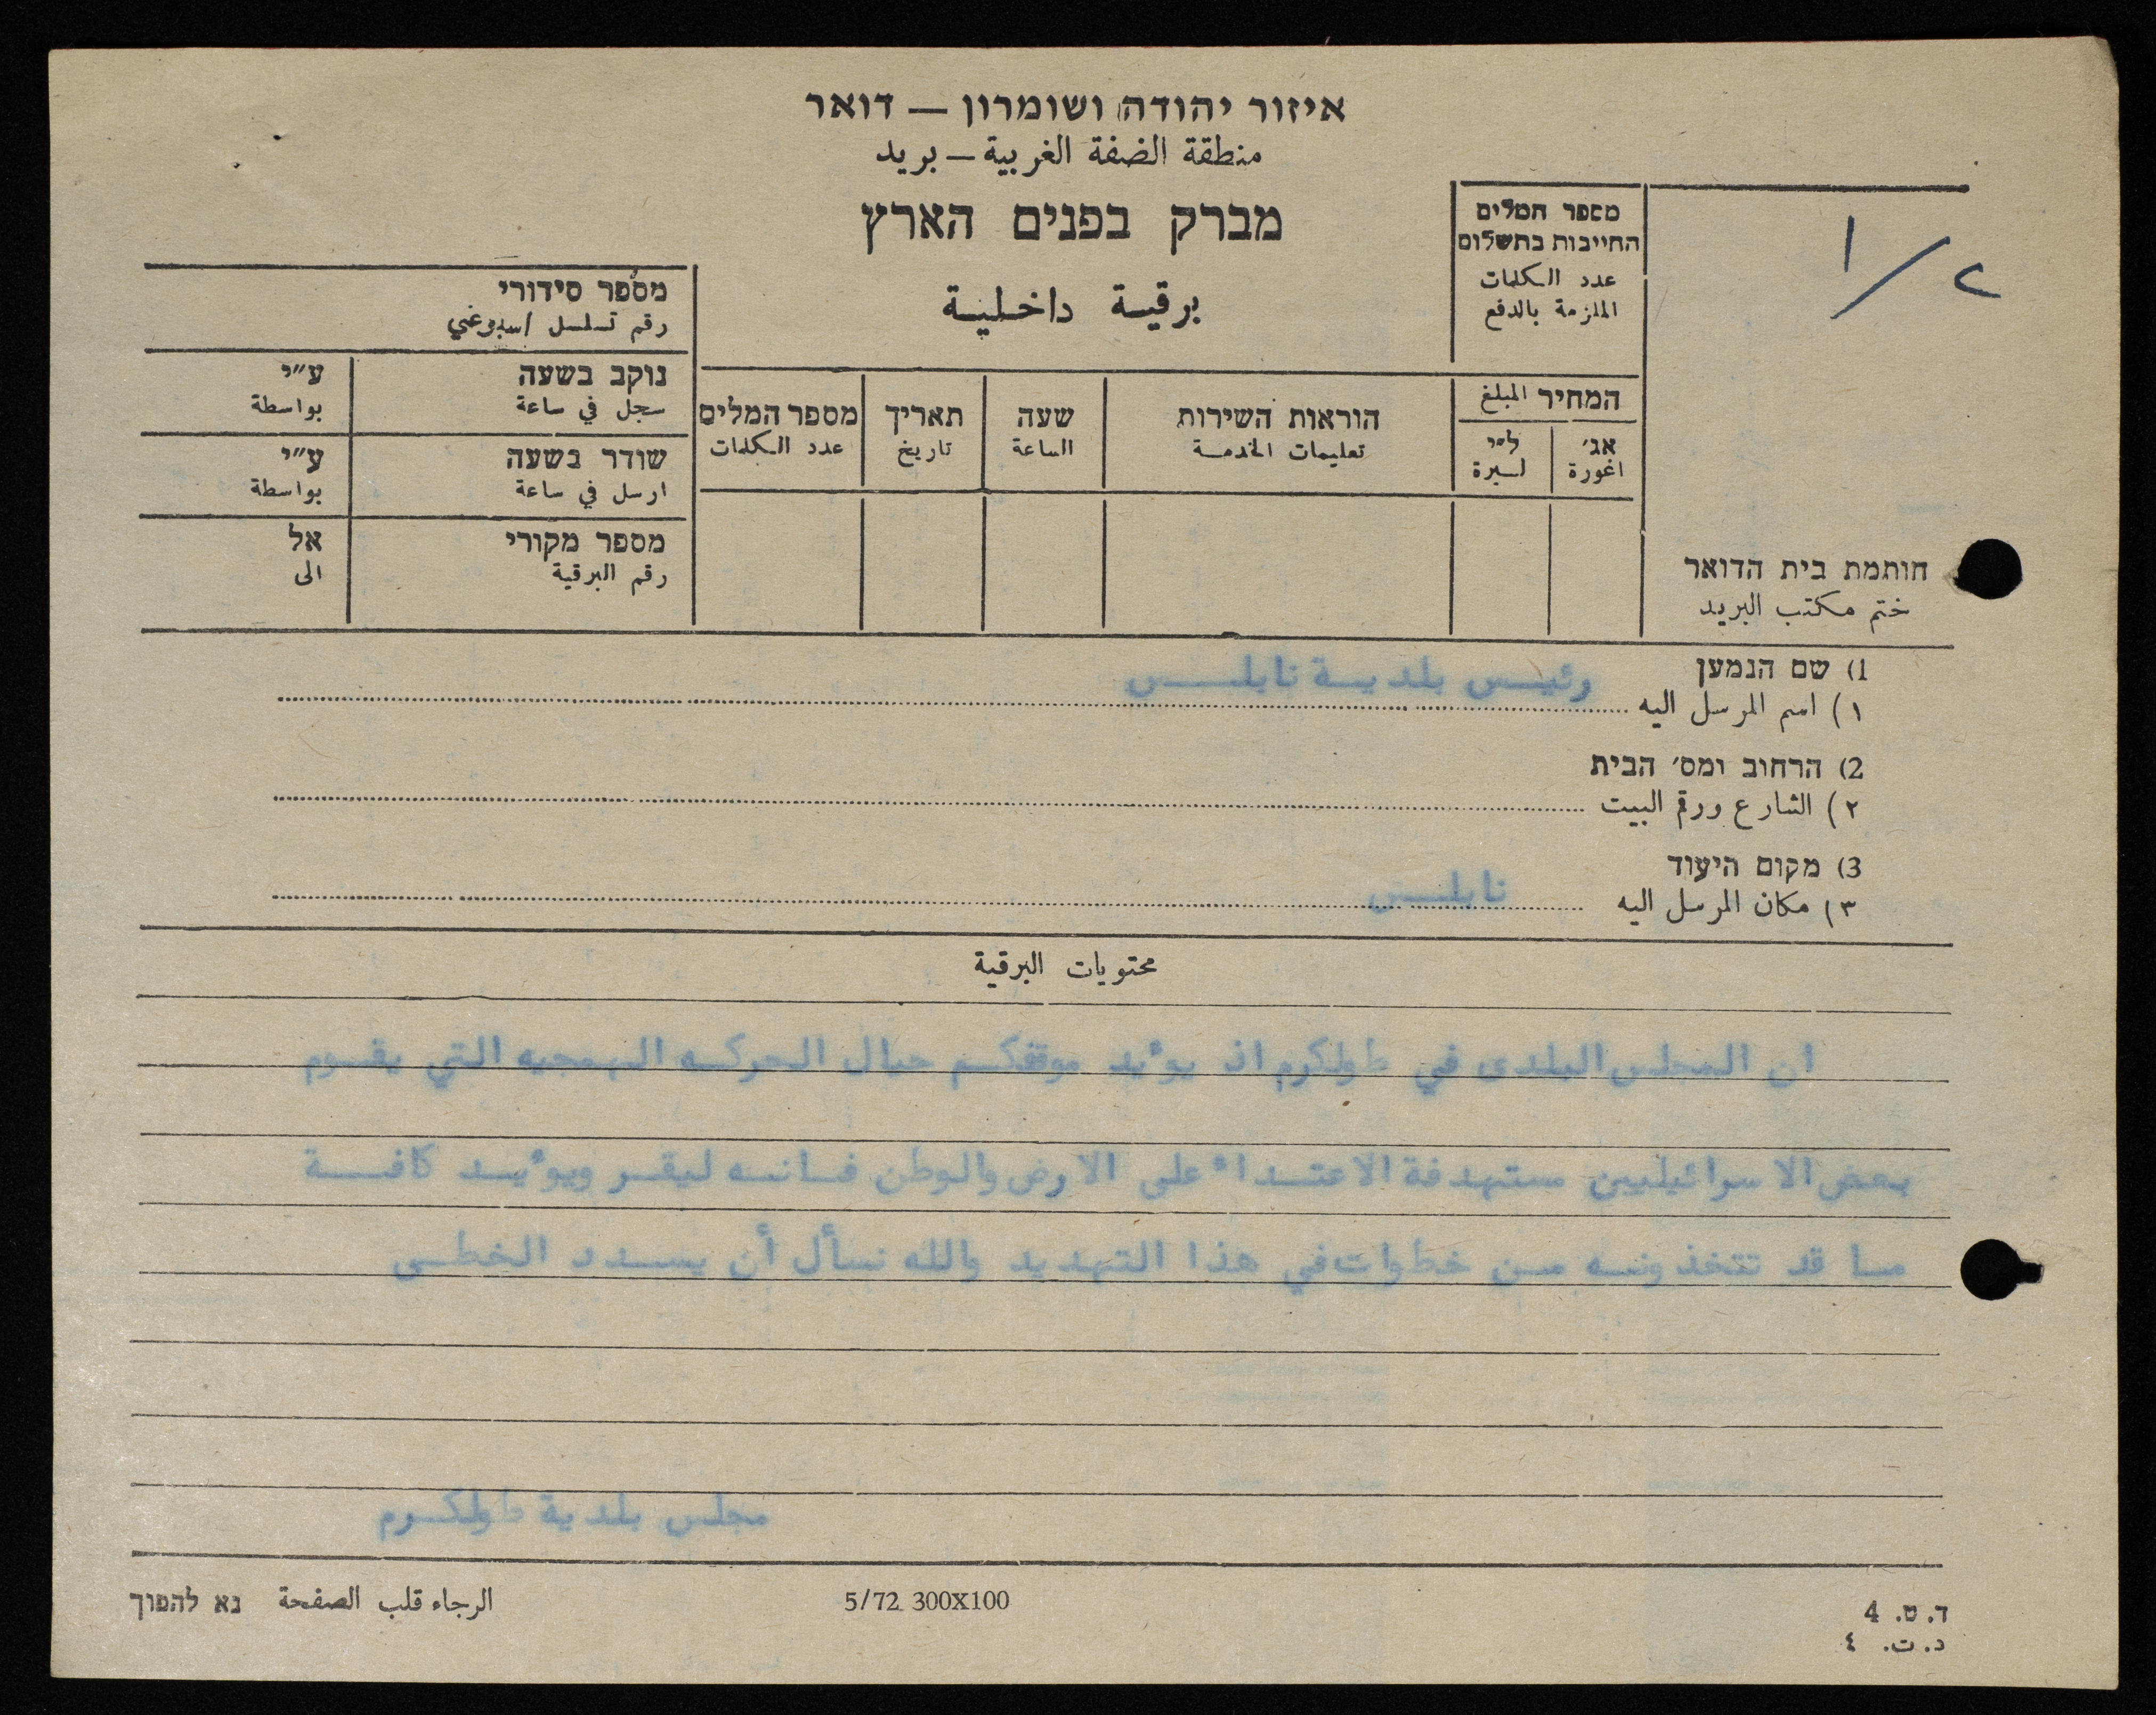 איזור יהודה ושומרון — דואר
منطقة الضفة الغربية — بريد
מברק בפנים הארץ
برقية داخلية
1/2
מספר המלים
החייבות בתשלום
عدد الكلمات
الملزمة بالدفع
המחיר المبلغ
אג׳
اغورة
ל״י
ليرة
הוראות השירות
تعليمات الخدمة
שעה
الساعة
תאריך
تاريخ
מספר המלים
عدد الكلمات
מספר סידורי
رقم تسلسل اسبوعي
נוקב בשעה
سجل في ساعة
ע״י
بواسطة
שודר בשעה
ارسل في ساعة
ע״י
بواسطة
מספר מקורי
رقم البرقية
אל
الى
חותמת בית הדואר
ختم مكتب البريد
1) שם הנמען
١) اسم المرسل اليه رئيس بلدية نابلس
2) הרחוב ומס׳ הבית
٢) الشارع ورقم البيت
3) מקום היעוד
٣) مكان المرسل اليه نابلس
محتويات البرقية
ان المجلس البلدى في طولكرم اذ يوءيد موقفكم حيال الحركه الهمجيه التي يقوم
بعض الاسرائيليين مستهدفة الاعتداء على الارض والوطن فانه ليقر ويوءيد كافة
ما قد تتخذونه من خطوات في هذا التهديد والله نسأل أن يسدد الخطى
مجلس بلدية طولكرم
ד. ט. 4
د. ت. ٤
5/72 300X100
الرجاء قلب الصفحة נא להפוך